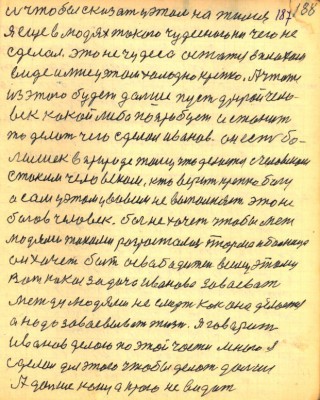 и чтобы сказат у этом на тише 187 188
я еще в людях такого чудесного ни чего не
сделал. это не чудеса
виде и мне у этом холодно крепко. А что
из этого будет дальше пуст другой чело-
век какой либо попробует и станит
по делат чего сделал иванов. он ест бо-
льшек в природе таму это делит с человеком
стоким человеком, кто верит крепко богу
а сам у этом совсем не выполняет это не
богов человек. бог не хочет чтобы меж
людями такими разростался тюрма и больница
он хочет быт освабадител всему этому
Вот какая задача иванова заваеват
между людями не смерт как она делается
а надо заваевыват жизн. Я говарит
иванов делаю по этой части много я
сделал для этого чтобы делат дальше
А дальше конца краю не видат